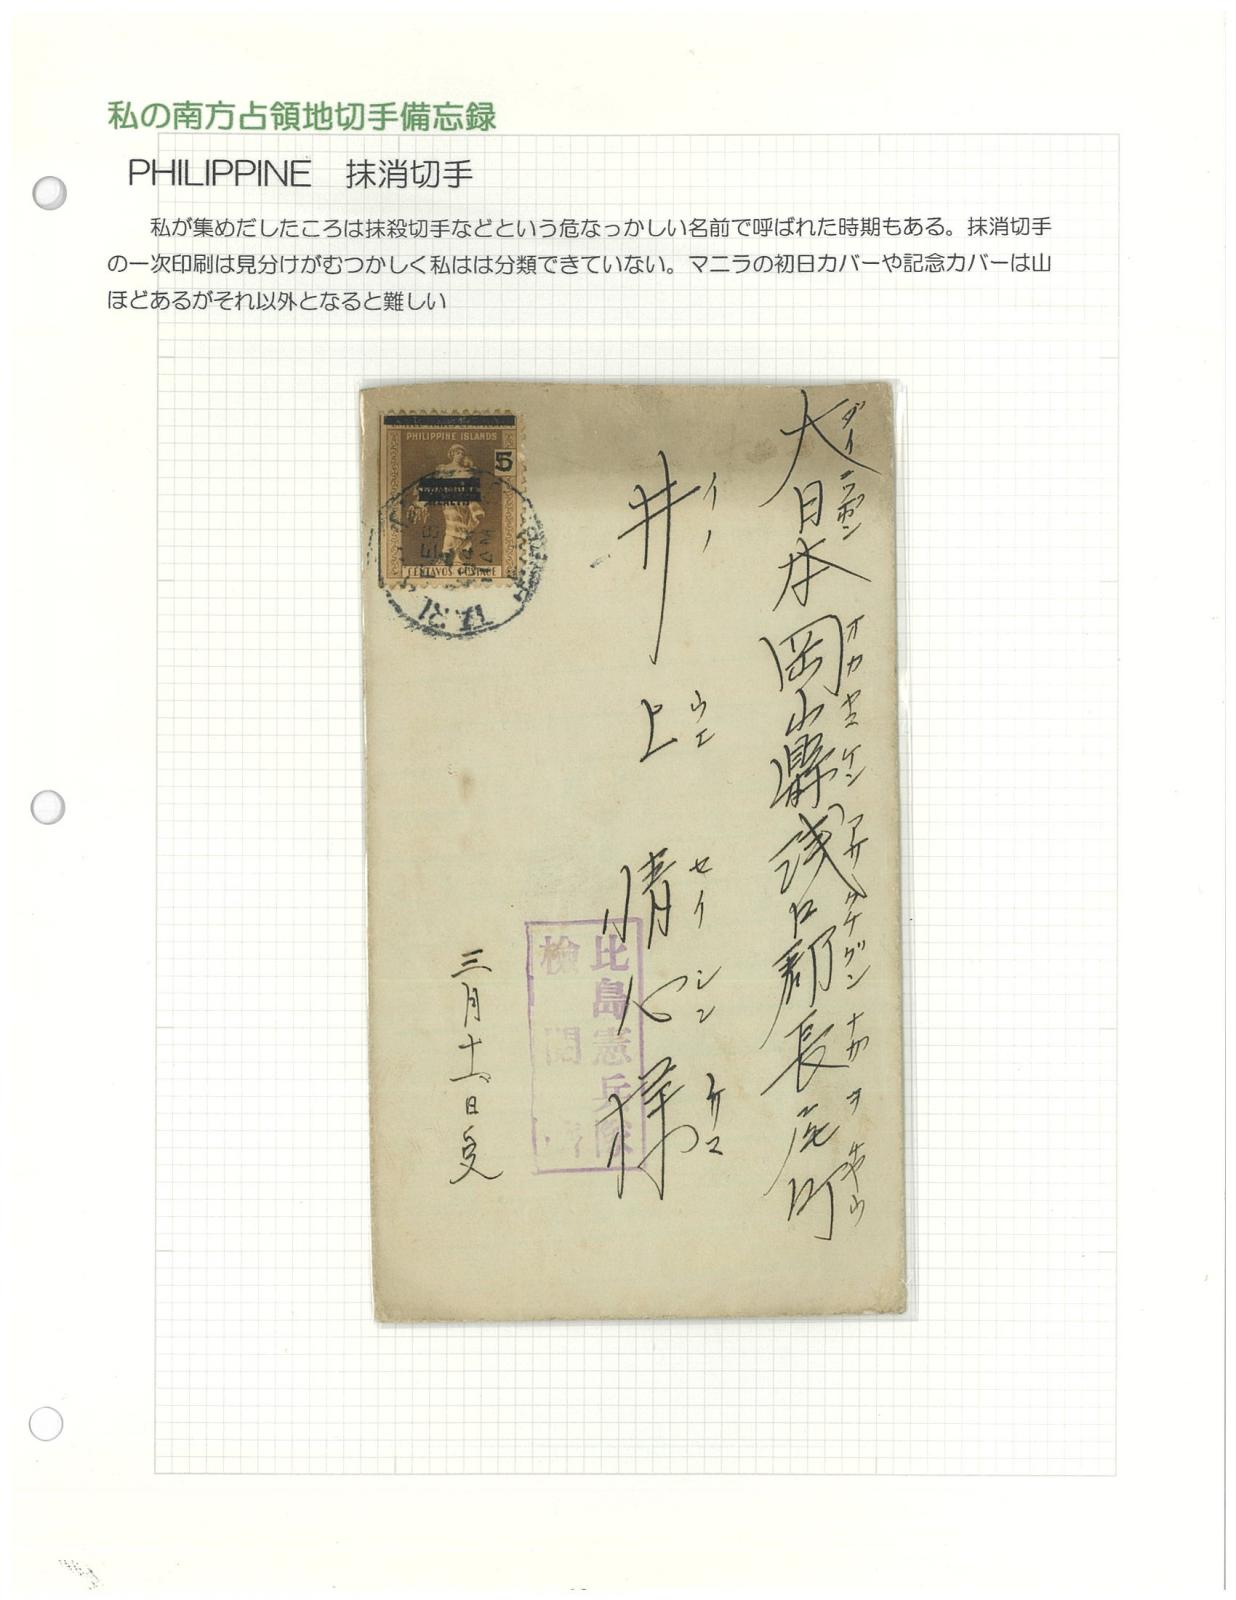 私の南方占領地切手備忘録
PHILIPPINE 抹消切手
私が集めだしたころは抹殺切手などという危なっかしい名前で呼ばれた時期もある。抹消切手
の一次印刷は見分けがむつかしく私はは分類できていない。マニラの初日カバーや記念カバーは山
ほどあるがそれ以外となると難しい
PHILIPPINE ISLANDS
5
CENTAVOS POSTAGE
P.I.
大日本岡山縣浅口郡長尾町
ダイニッポン オカヤマケン
井上情心様
イノウエ セイシン サマ
比島憲兵隊
檢閲濟
三月十一日受